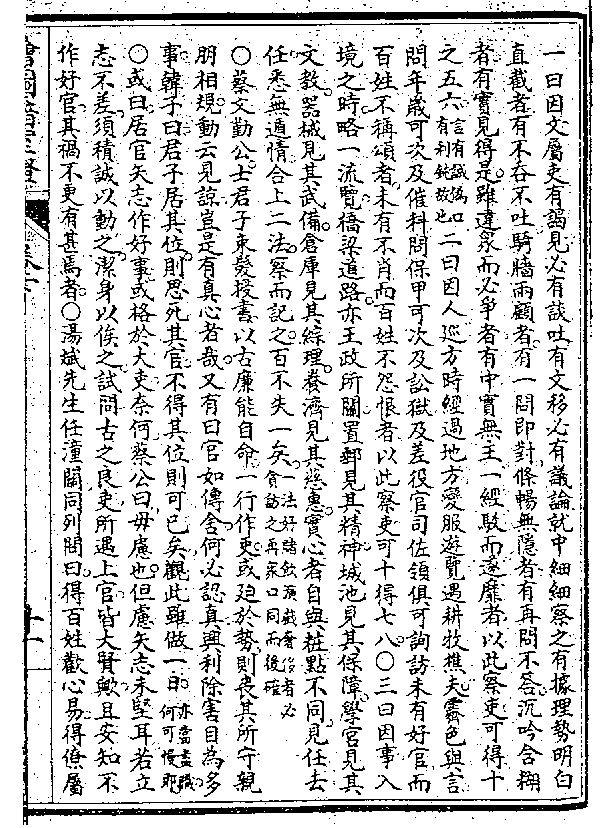 一曰因文屬吏有謁見必有談吐有文移必有議論就中細細察之有據理勢明白
直截者有不吞不吐騎牆兩顧者有一問即對條暢無隱者有再問不答沉吟含糊
者有實見得是雖違衆而必爭者有中實無主一經駁而遂靡者以此察吏可得十
之五六言有誠僞口有利鈍故也二曰因人巡方時經過地方變服遊覽遇耕牧樵夫霽色與言
問年歲可次及催科問保甲可次及訟獄及差役官司佐領俱可詢訪未有好官而
百姓不稱頌者未有不肖而百姓不怨恨者以此察吏可十得七八○三曰因事入
境之時略一流覽橋梁道路亦王政所關置郵見其精神城池見其保障學宮見其
文教器械見其武備倉庫見其綜理養濟見其慈惠實心者自與粧點不同見任去
任悉無遁情合上二法察而記之百不失一矣一法好賭飲演戲奢侈者必貪訪之再衆口同而後確
○蔡文勤公士君子束髮授書以古廉能自命一行作吏或廹於勢則喪其所守親
朋相規動云見諒豈是有真心者哉又有曰官如傳舍何必認真興利除害自為多
事韓子曰君子居其位則思死其官不得其位則可已矣觀此雖做一日亦當盡職何可慢耶
○或曰居官矢志作好事或格於大吏奈何蔡公曰毋慮也但慮矢志未堅耳若立
志不差須積誠以動之潔身以俟之試問古之良吏所遇上官皆大賢歟且安知不
作好官其禍不更有甚焉者○湯斌先生任潼關同列問曰得百姓歡心易得僚屬